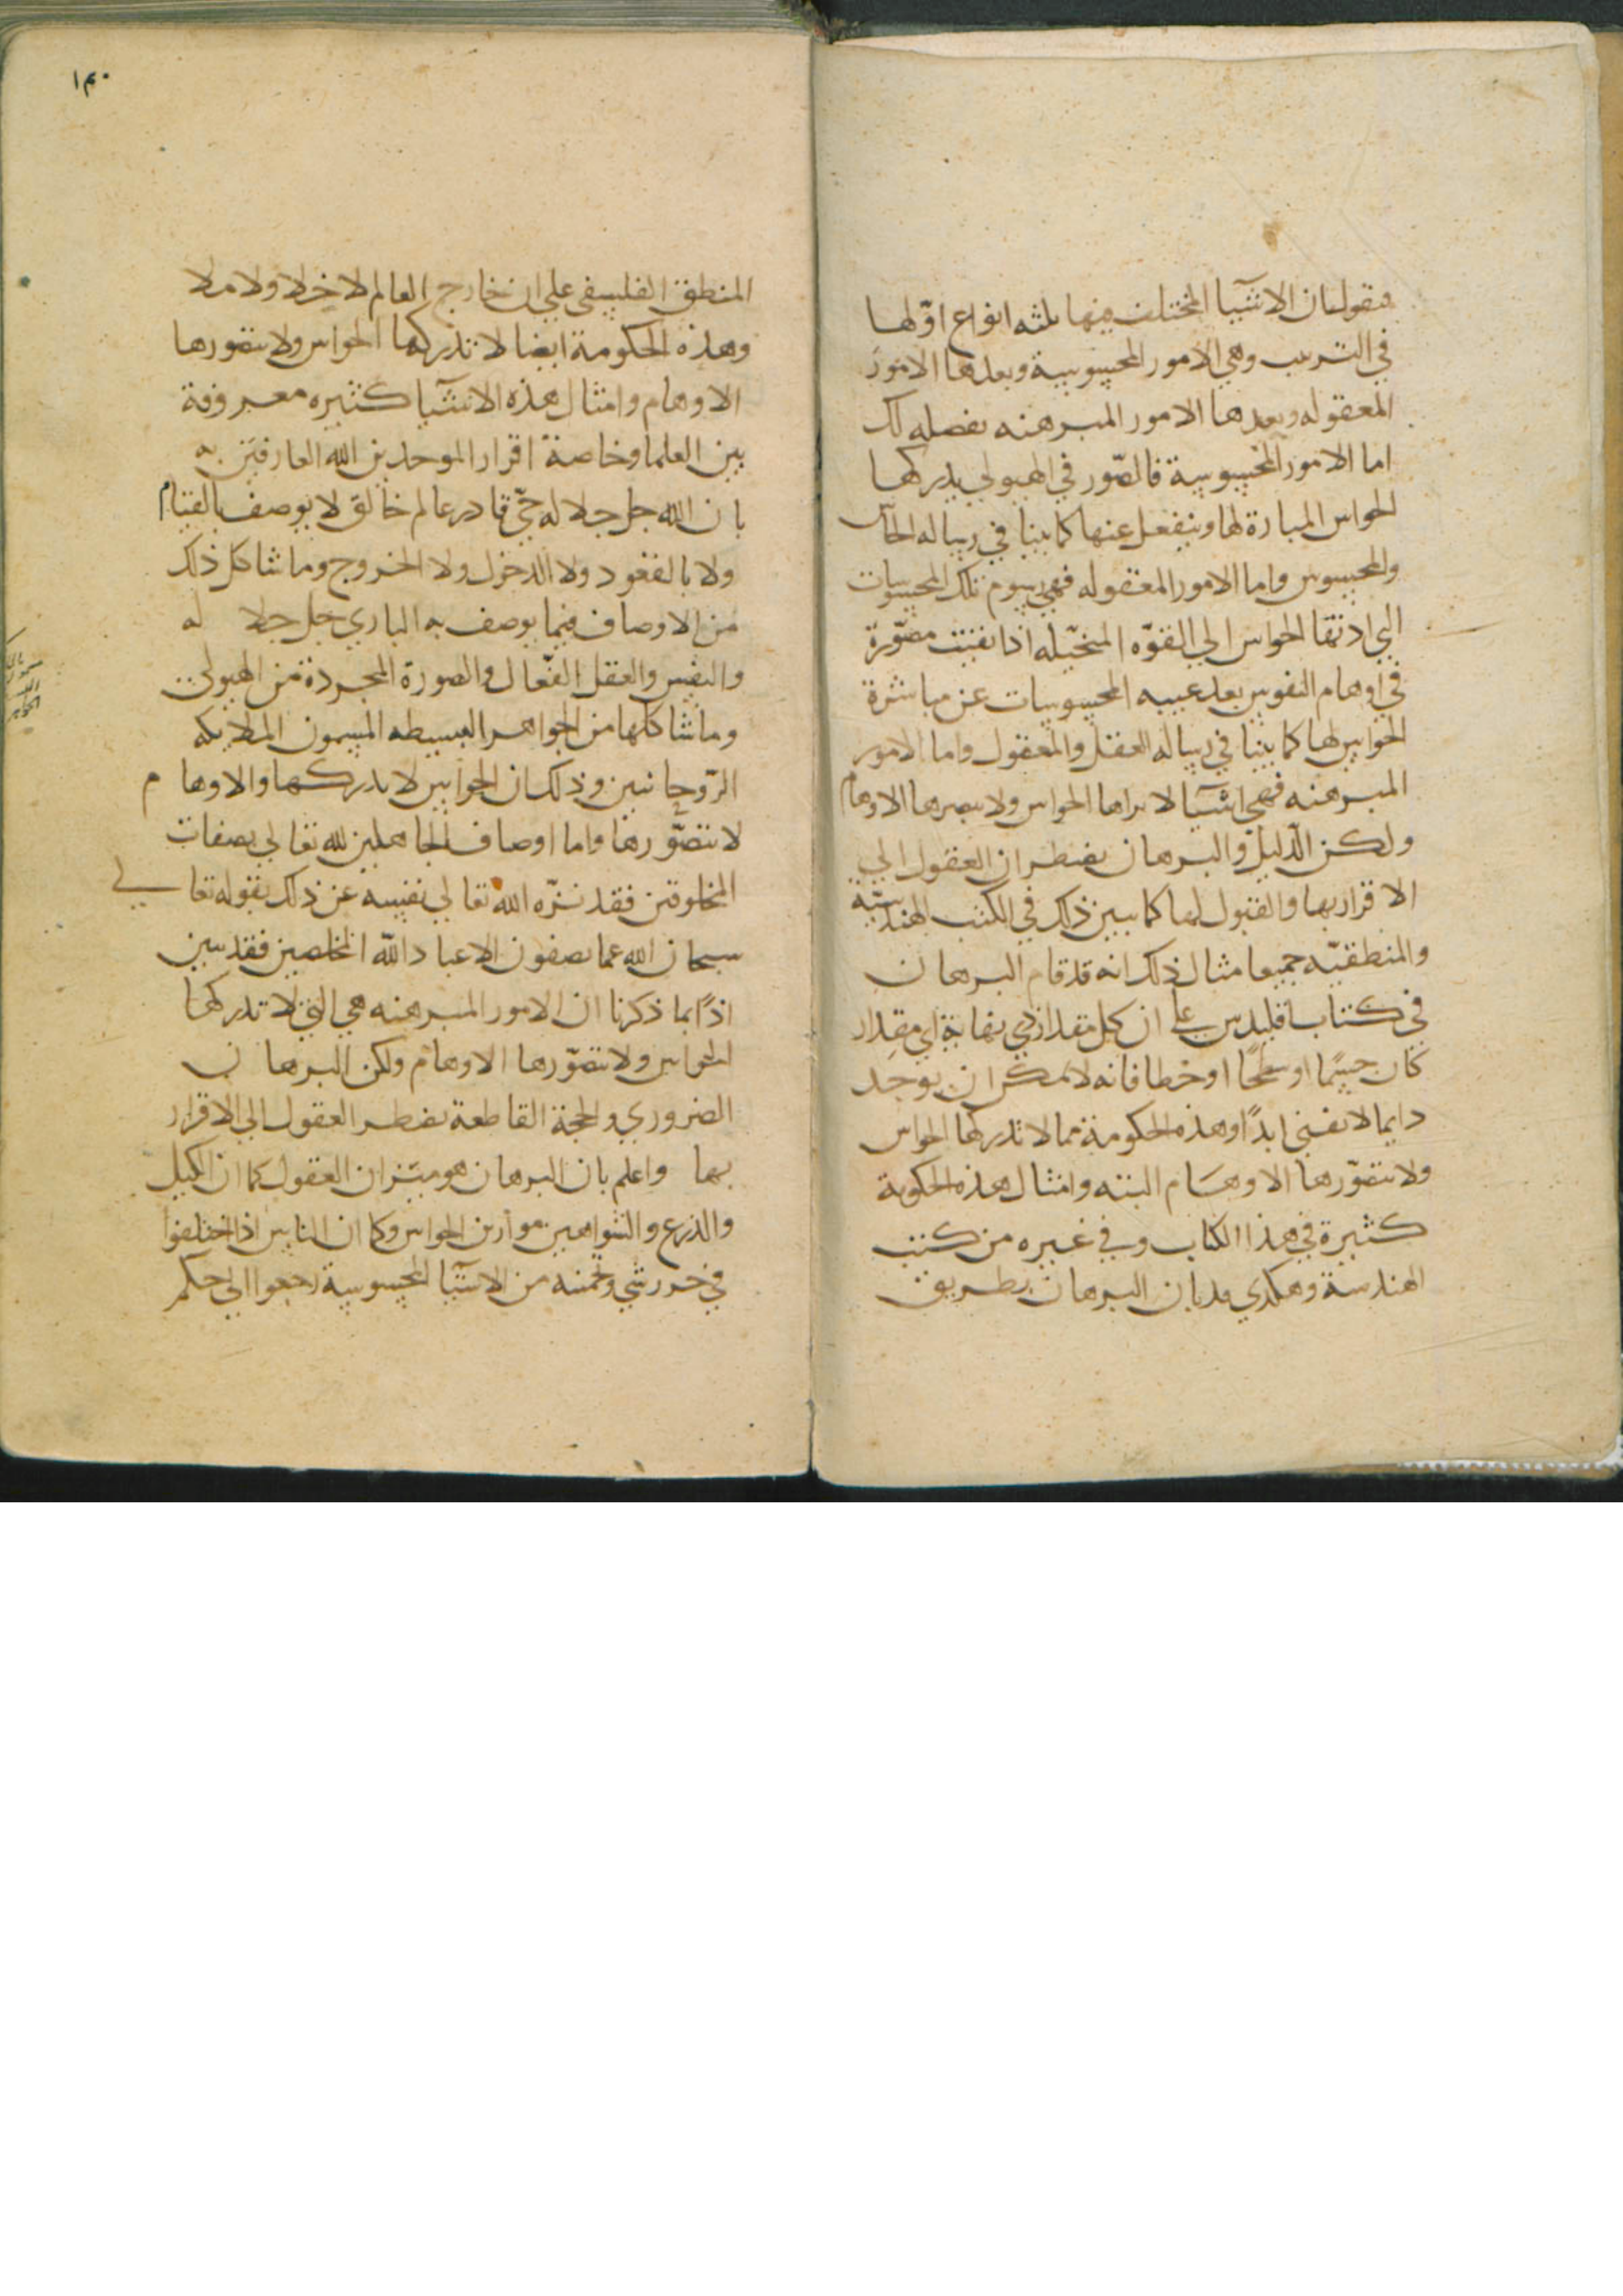 فنقول ان الاشيا المختلف فيها ثلثه انواع اوّلها
في الترتيب وهي الامور المحسوسية وبعدها الامور
المعقوله وبعدها الامور المبرهنه نفصله لك
اما الامور المحسوسية فالصّور في الهيولي يدركها
الحواس المبارة لها وينفعل عنها كما بينا في رساله الحآس
والمحسوس واما الامور المعقوله فهي رسوم تلك المحسوسات
التي ادتها الحواس الي القوّه المتخيّله اذا بقيت مصّورة
في اوهام النفوس بعد غيبه المحسوسات عن مباشرة
الحواس لها كما بينا في رساله العقل والمعقول واما الامور
المبرهنه فهي اشيآ لا يراها الحواس ولا يتصرها الاوهام
ولكن الدّليل والبرهان يضطران العقول الي
الاقرار بها والقبول لها كما يبين ذلك في الكتب الهندسيّه
والمنطقيّه جميعا مثال ذلك انه قد قام البرهان
في كتاب اقليدس علي ان كل مقدار ذي نهاية اي مقدار
كان جسمًا او سطحًا او خطا فانه لا يمكن ان يوجد
دايما لا يفني ابدًا وهذه الحكومة مما لا تدركها الحواس
ولا تتصّورها الاوهام البتته وامثال هذه الحكومة
كثيرة في هذا الكتاب وفي غيره من كتب
الهندسة وهكذي قد بان البرهان بطريق
١٣٠
المنطق الفلسفي علي ان خارج العالم لا خلا ولا ملا
وهذه الحكومة ايضا لا تدركها الحواس ولا تتصورها
الاوهام وامثال هذه الاشيآ كثيره معروفة
بين العلما وخاصة اقرار الموحدين الله العارفين به
بان الله جل جلاله حيّ قادر عالم خالق لا يوصف بالقيام
ولا بالقعود ولا الدخول ولا الخروج وما شاكل ذلك
من الاوصاف فيما يوصف به الباري جل جلا له
والنفس والعقل الفّعال والصورة المجردة من الهيولي
وما شاكلها من الجواهر البسيطه المسمون الملايكه
الرّوحانيين وذلك ان الحواس لا تدركها والاوها م
لا تتصّورها واما اوصاف الجاهلين لله تعالي بصفات
المخلوقين فقد نزّه الله تعالي نفسه عن ذلك بقوله تعالي
سبحان الله عما يصفون الا عباد اللّه المخلصين فقد تبين
اذًا بما ذكرنا ان الامور المبرهنه هي التي لا تدركها
الحواس ولا تتصّورها الاوهام ولكن البرهان
الضروري والحجة القاطعة يضطر العقول الي الاقرار
بها واعلم بان البرهان هو ميزان العقول كما ان الكيل
والذرع والشواهين موازين الحواس وكما ان الناس اذا اختلفوا
في حزر شي وتخمينه من الاشيآ المحسوسية رجعوا الي حكم